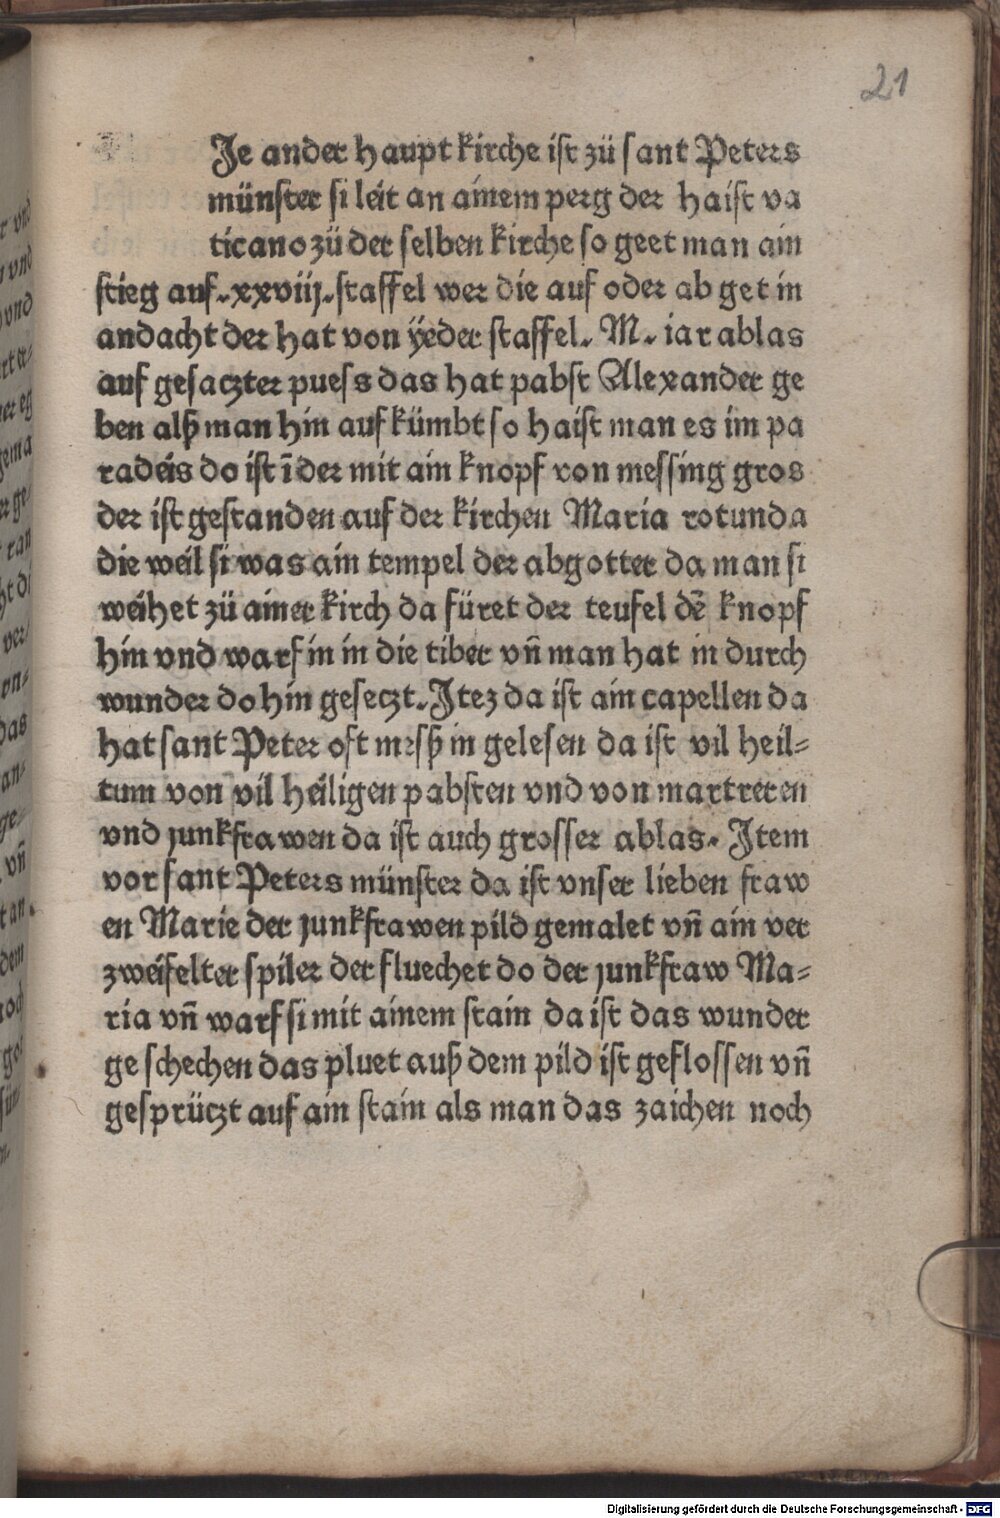 21
Je ander haupt kirche ist zü sant Peters
münster si leit an ainem perg der haist va
ticano zü der selben kirche so geet man ain
stieg auf. xxviij. staffel wer die auf oder ab get in
andacht der hat von ÿeder staffel. M. iar ablas
auf gesaczter puess das hat pabst Alexander ge
ben alß man hin auf kümbt so haist man es im pa
radeis do ist ī der mit ain knopf von messing gros
der ist gestanden auf der kirchen Maria rotunda
die weil si was ain tempel der abgotter da man si
weihet zü ainer kirch da füret der teufel dē knopf
hin vnd warf in in die tiber vn̄ man hat in durch
wunder do hin geseczt. Itez da ist ain capellen da
hat sant Peter oft mesß in gelesen da ist vil heil-
tum von vil heiligen pabsten vnd von martreren
vnd junkfrawen da ist auch grosser ablas. Item
vor sant Peters münster da ist vnser lieben fraw
en Marie der junkfrawen pild gemalet vn̄ ain ver
zweifelter spiler der fluechet do der junkfraw Ma-
ria vn̄ warf si mit ainem stain da ist das wunder
ge schechen das pluet auß dem pild ist geflossen vn̄
gesprüczt auf ain stain als man das zaichen noch
Digitalisierung gefördert durch die Deutsche Forschungsgemeinschaft - DFG